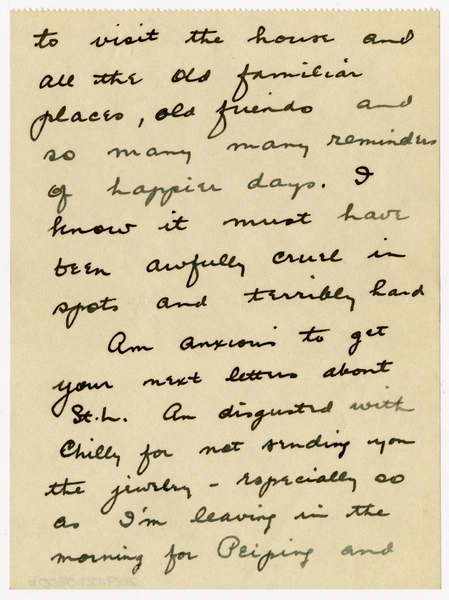 to visit the house and
all the old familiar
places, old friends and
so many many reminders
of happier days. I
know it must have
been awfully cruel in
spots and terribly hard
Am anxious to get
your next letters about
St. L. Am disgusted with
Chilly for not sending you
the jewelry - especially so
as I'm leaving in the
morning for Peiping and